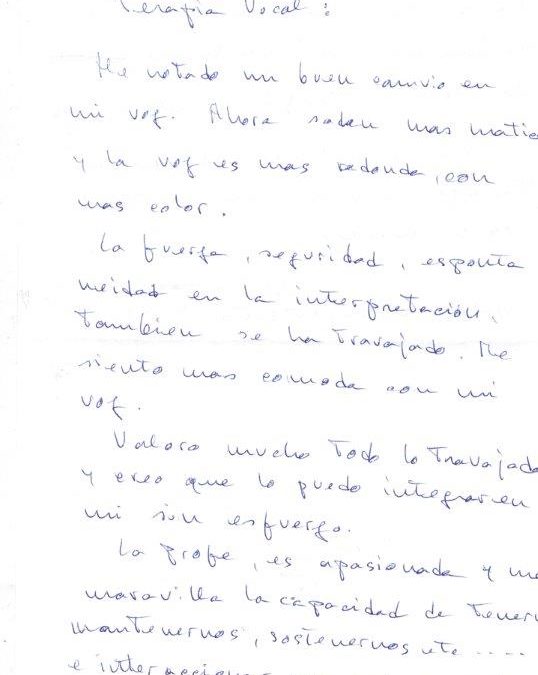 Terapia Vocal :
He notado un buen camvio en
mi voz. Ahora salen mas matic
y la voz es mas redonda, con
mas color.
La fuerza, seguridad, esponta
neidad en la interpretación,
tambien se ha travajado. Me
siento mas comoda con mi
voz.
Valoro mucho todo lo travajado
y creo que lo puedo integrar en
mi sin esfuerzo.
La profe, es apasionada y me
maravilla la capacidad de tener
mantenernos, sostenernos etc ....
e interaccion